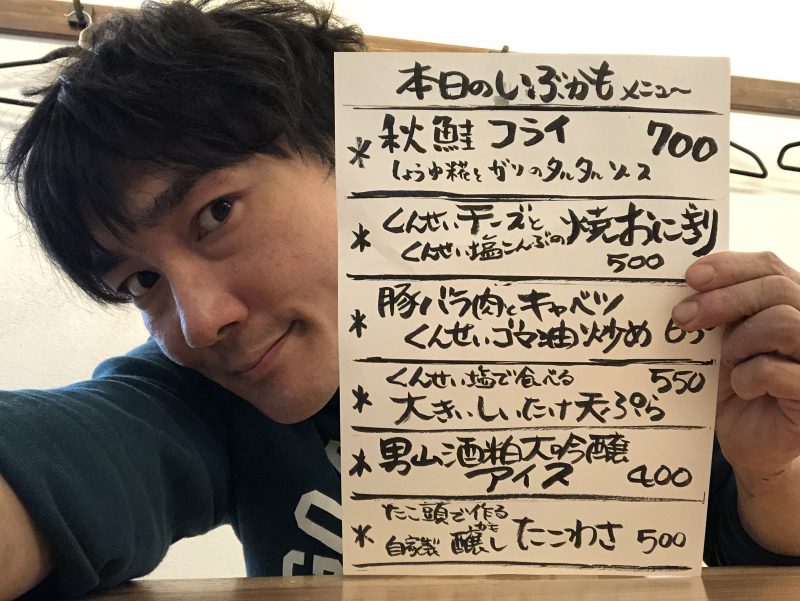 本日のいぶかもメニュー
* 秋鮭フライ 700
しょうゆ糀とガリのタルタルソース
* くんせいチーズと
くんせい塩こんぶの焼おにぎり
500
* 豚バラ肉とキャベツ
くんせいゴマ油炒め 65
くんせい塩で食べる 550
* 大きいしいたけ天ぷら
* 男山酒粕大吟醸
アイス 400
* たこ頭で作る
自家製 醸し たこわさ 500
かも